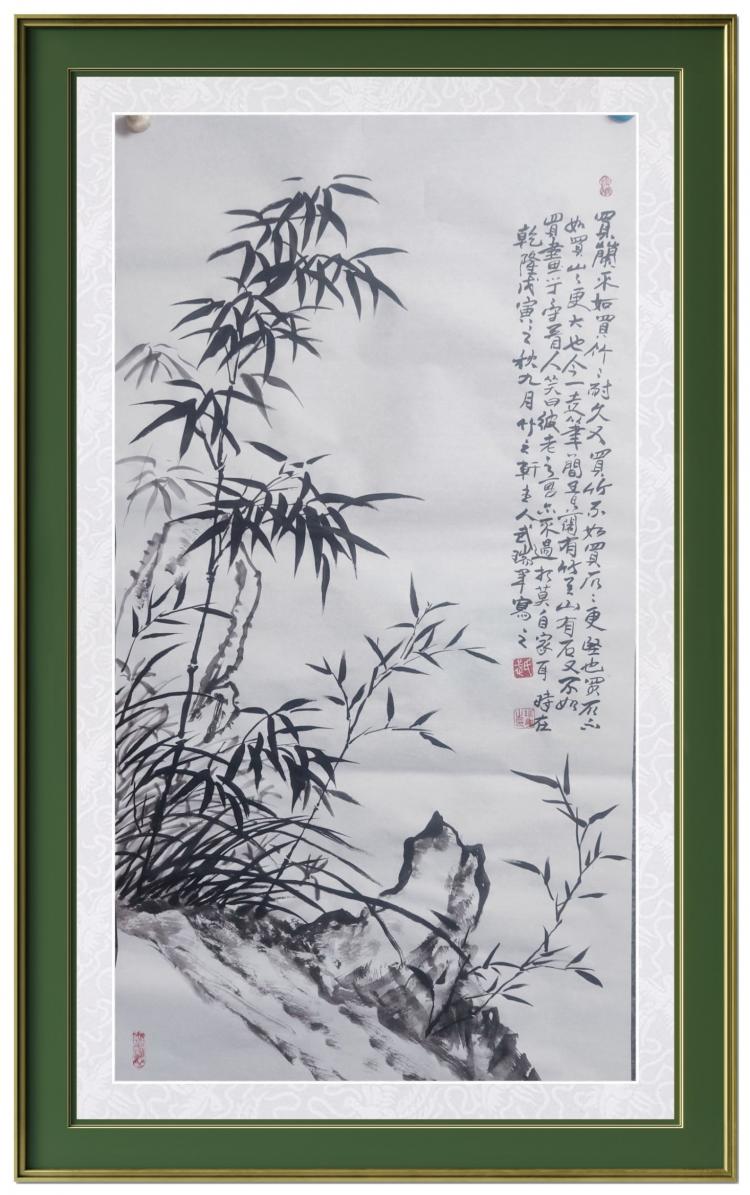 買蘭不如買竹〻耐久又買竹不如買石〻更堅也買石不
如買山〻更大也今一筆簡蘭有竹山有石又不如
買畫守著人笑曰彼老亦不過莫自家耳時在
乾隆戊寅之秋九月竹之軒主人武瑞軍寫之